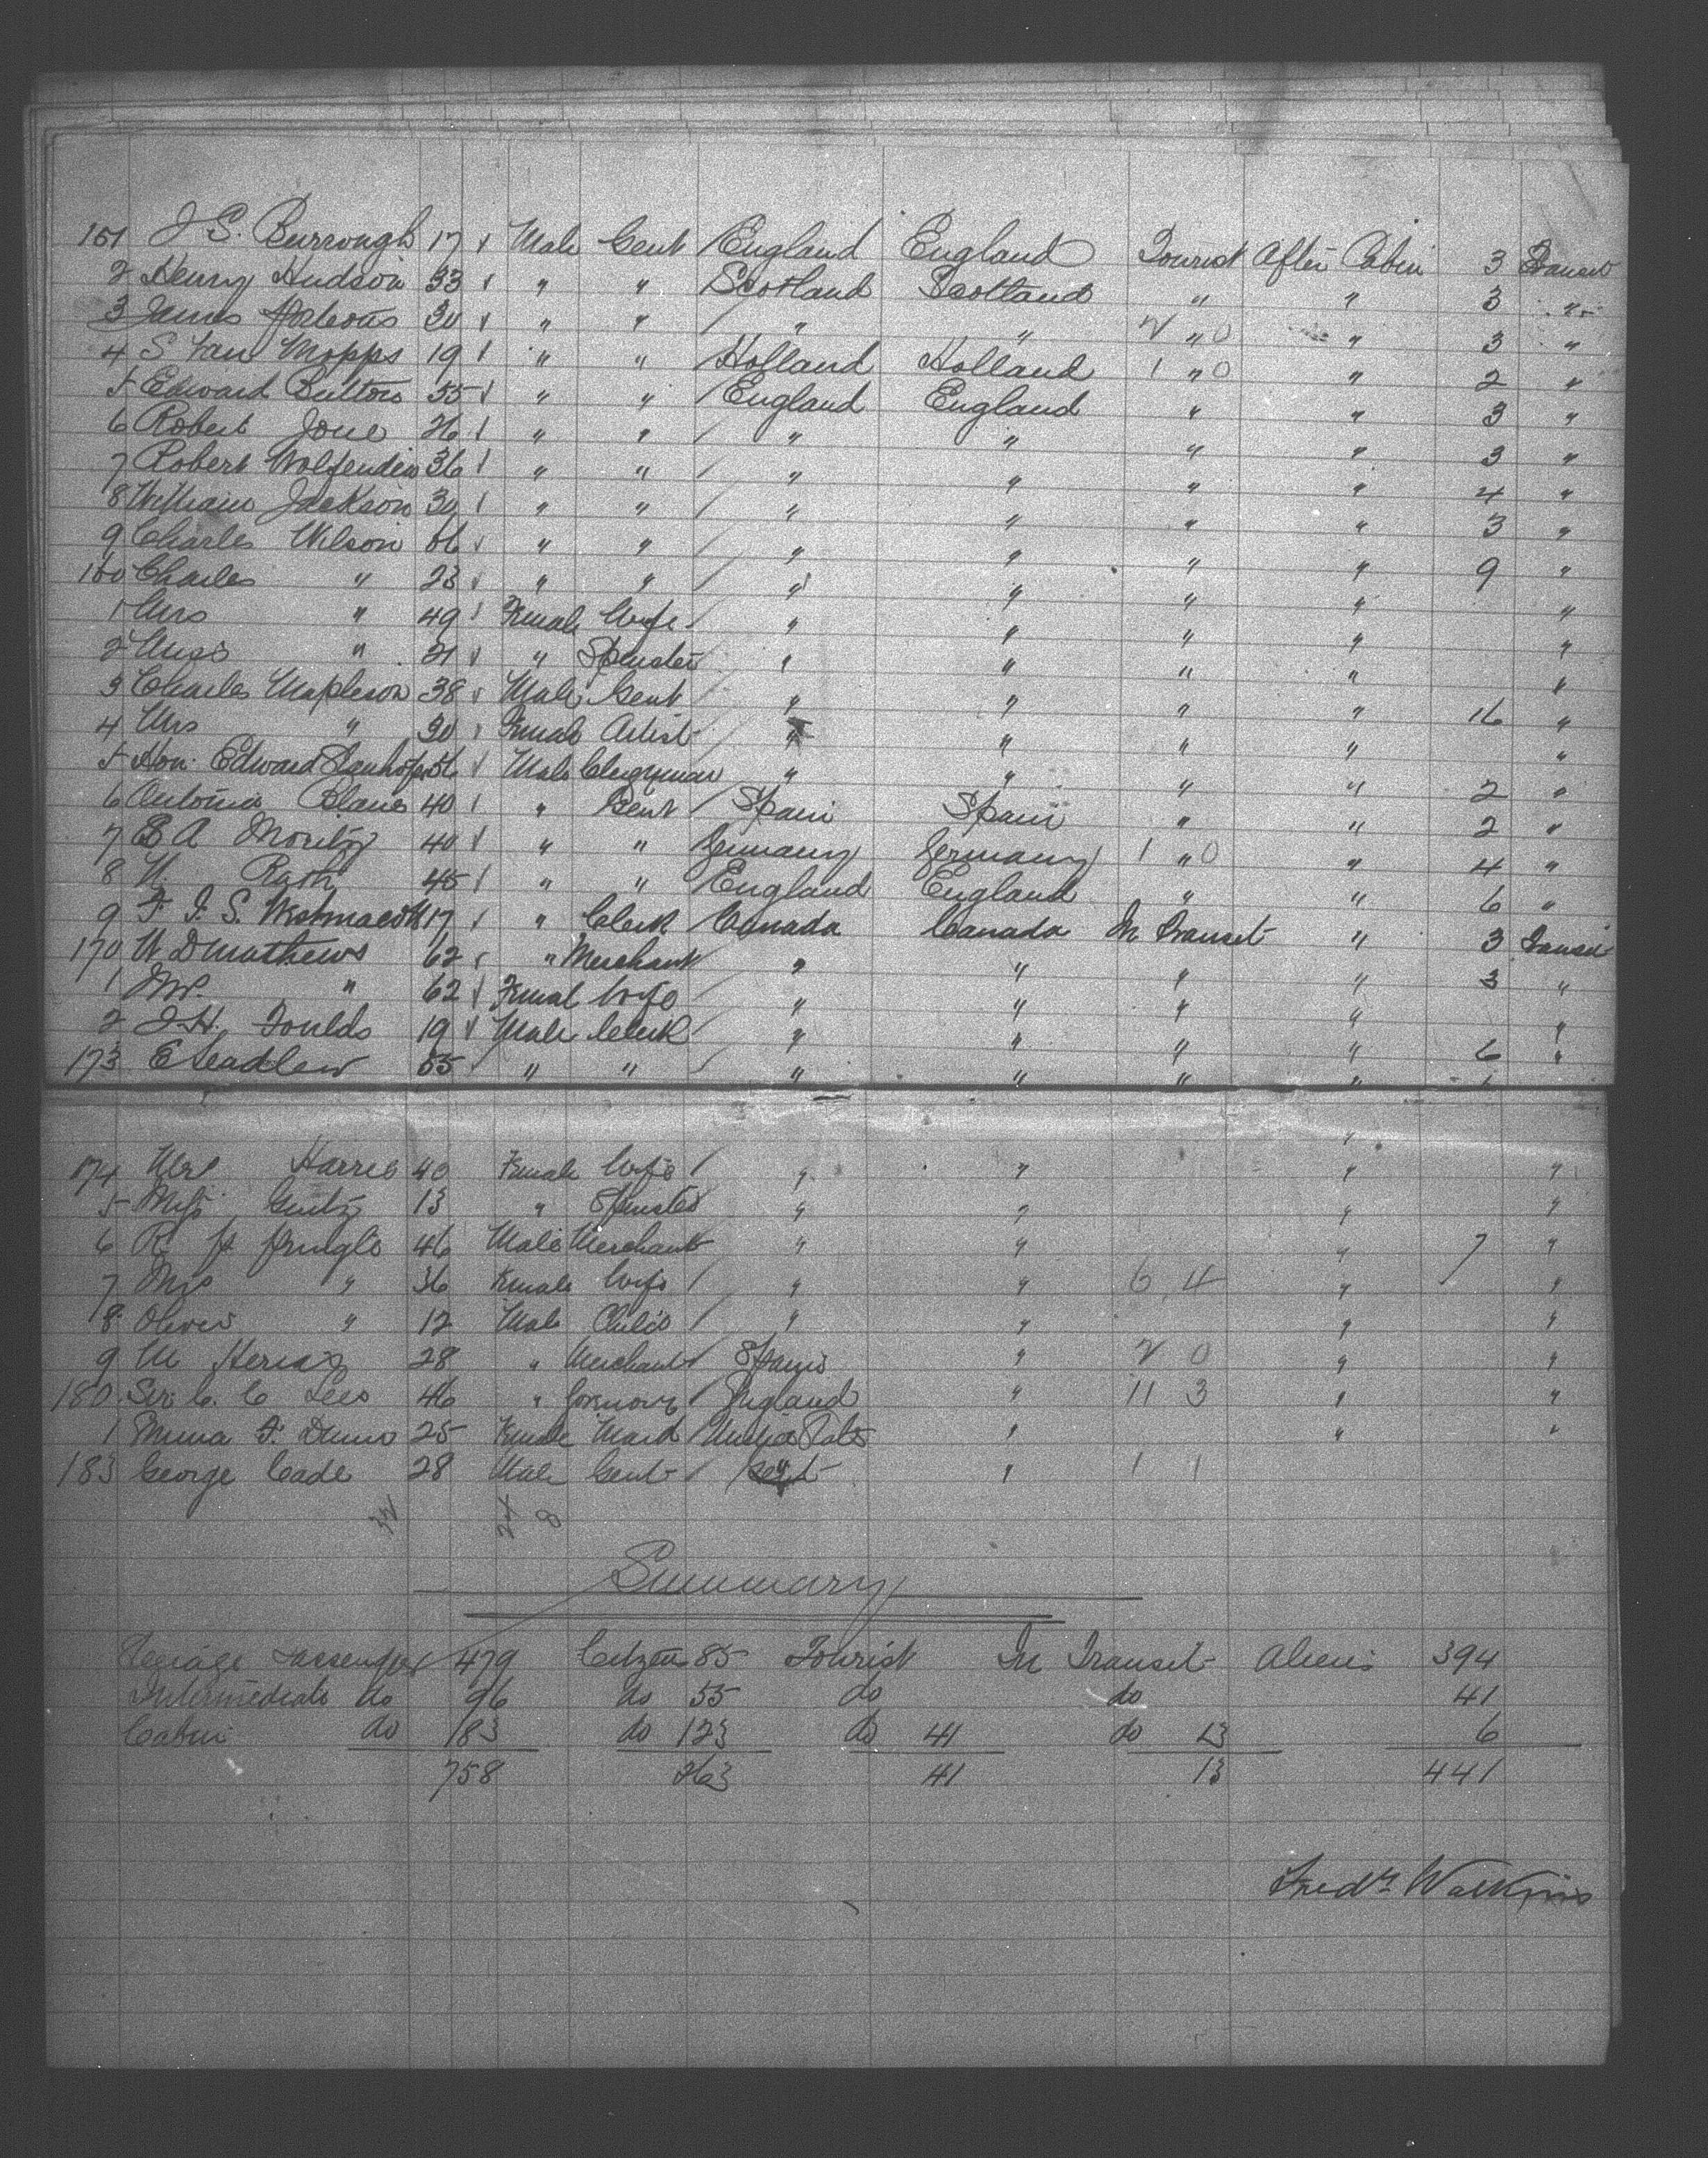 151 J S. Burrough 17 Male Gent England England Tourist After Cabin 3 Transit
2 Henry Hudson 33 " " Scotland Scotland " " 3 "
3 James 30 " " " " " " 3 "
4 S Van Mopps 19 " " Holland Holland 1 " 0 " 2 "
5 Edward 55 " " England England " " 3 "
6 Robert 26 " " " " " " 3 "
7 Robert Wolfenden 36 " " " " " " 4 "
8 William Jackson 30 " " " " " " 3 "
9 Charles Wilson 56 " " " " " " 9 "
160 Charles " 23 " " " " " " "
1 Mrs " 49 Female Wife " " " " "
2 Miss " 21 " Spinster " " " " "
3 Charles Mapleson 38 Male Gent " " " " 16 "
4 Mrs " 30 Female Artist " " " " "
5 Hon. Edward Stanhope 56 Male Clergyman " " " " 2 "
6 Antonia 40 " Gent Spain Spain " " 2 "
7 A Moritz 40 " " Germany Germany 1 " 0 " 4 "
8 45 " " England England " " 6 "
9 F. J. S. Westmacott 17 " Clerk Canada Canada In Transit " 3 Transit
170 W D Mathews 62 " Merchant " " " " 3 "
1 Mrs. " 62 Female Wife " " " " "
2 J. H. Foulds 19 Male Clerk " " " " 6 "
173 E 55 " " " " " "
174 Mrs Harris 40 Female Wife " " " "
5 Miss 13 " Spinster " " " "
6 R Pringle 46 Male Merchant " " " 7 "
7 Mrs " 36 Female Wife " " 6 4 " "
8 Oliver " 12 Male Child " " " "
9 M 28 " Merchant Spain " 2 0 " "
180 Sir C. C Lees 46 " Governor England " 11 3 " "
1 F. Dunn 25 Female Maid United States " " "
183 George Cade 28 Male Gent " " 1 1
32 24 8
Summary
Steerage Passengers 479 Citizen 85 Tourist In Transit Aliens 394
Intermediate do 96 do 55 do do 41
Cabin do 183 do 123 do 41 do 13 6
758 263 41 13 441
Fredk Watkins